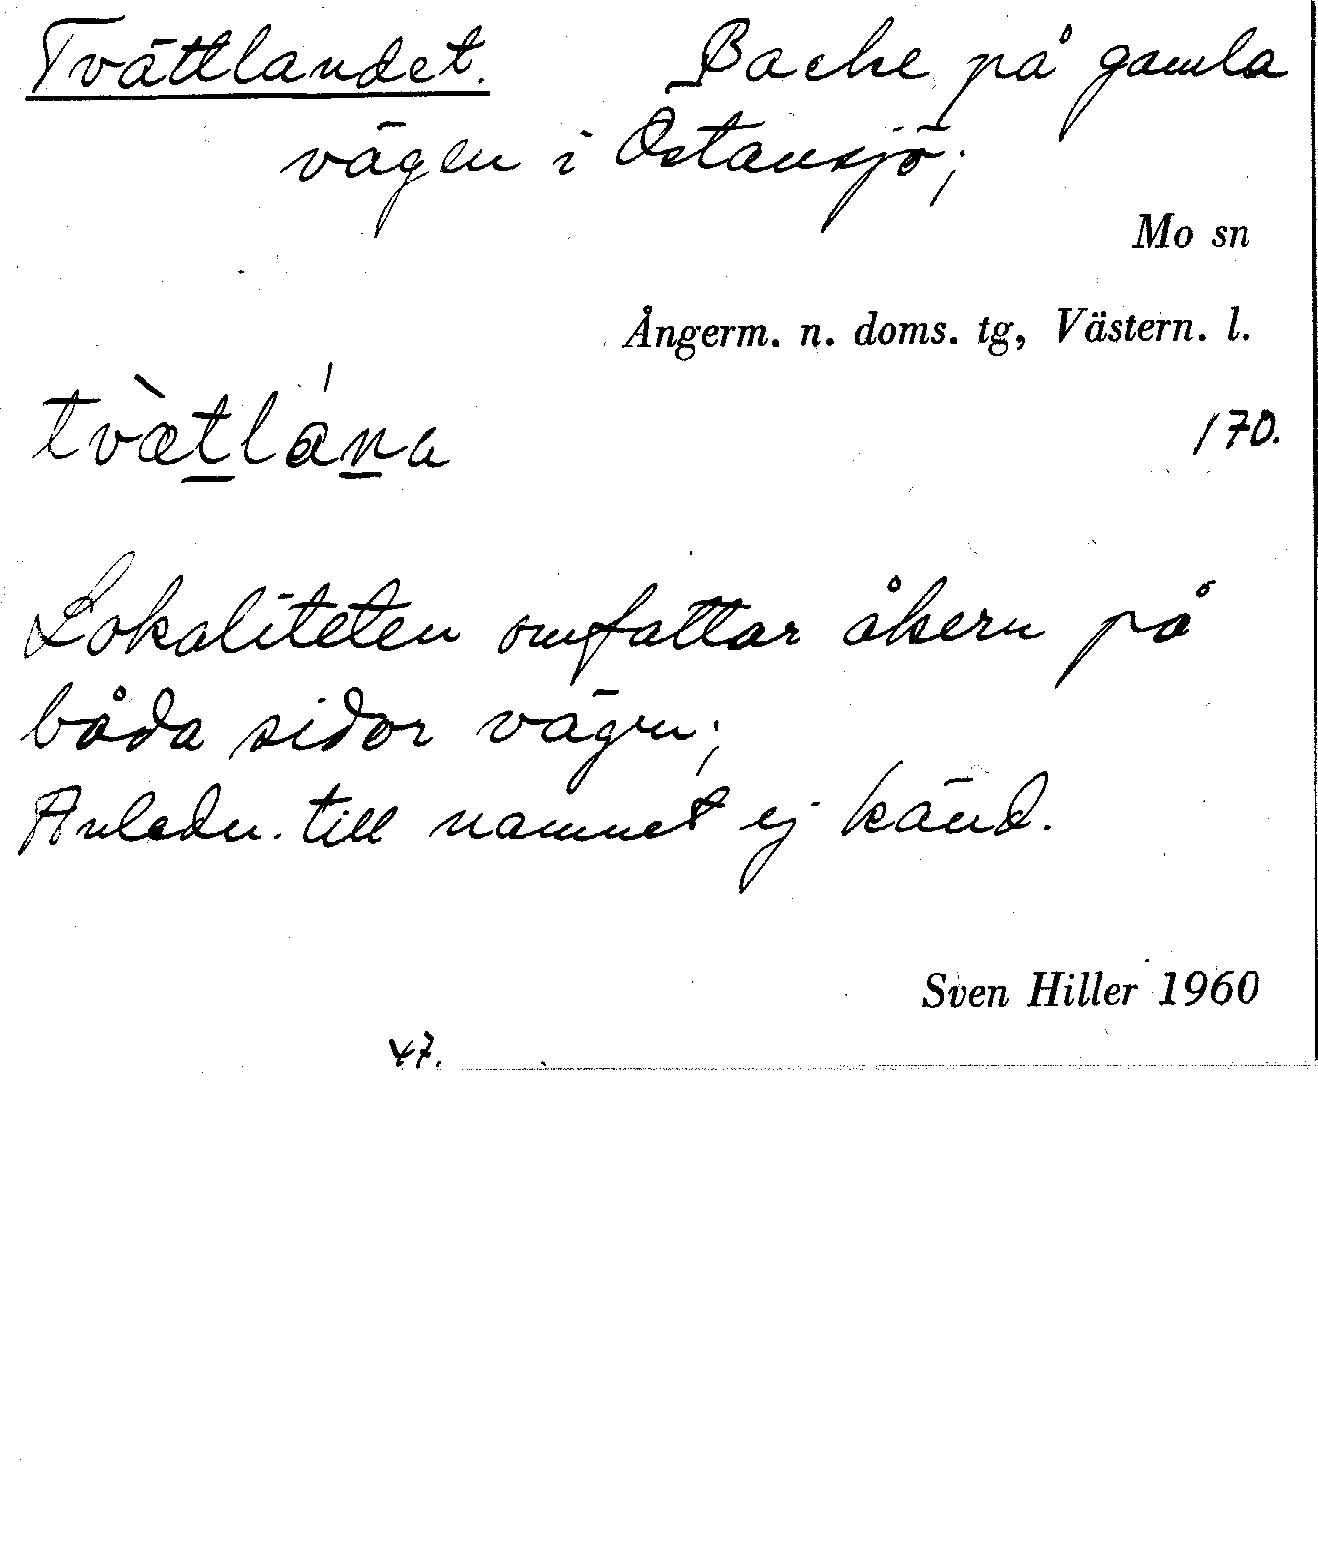 Tvättlandet. Backe på gamla
vägen i Östansjö;
Mo sn
Ångerm. n. doms. tg, Västern. l.
tvæ̀t̲lán̲a
170.
Lokaliteten omfattar åkern på
båda sidor vägen;
Anledn. till namnet ej känd.
Sven Hiller 1960
47.